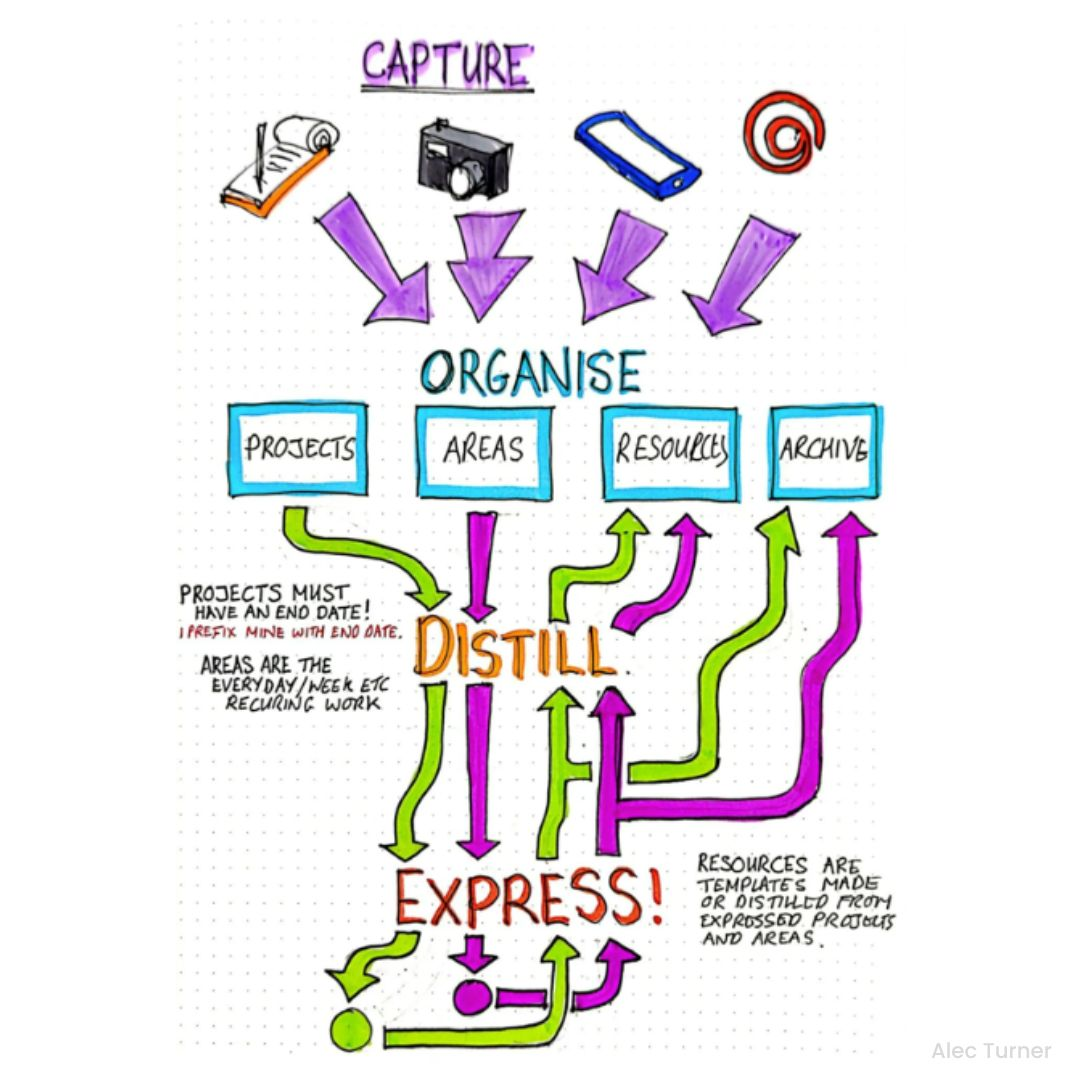 CAPTURE
ORGANISE
PROJECTS
AREAS
RESOURCES
ARCHIVE
PROJECTS MUST
HAVE AN END DATE!
I PREFIX MINE WITH END DATE.
AREAS ARE THE
EVERYDAY/WEEK ETC
RECURING WORK
DISTILL
EXPRESS!
RESOURCES ARE
TEMPLATES MADE
OR DISTILLED FROM
EXPRESSED PROJECTS
AND AREAS.
Alec Turner